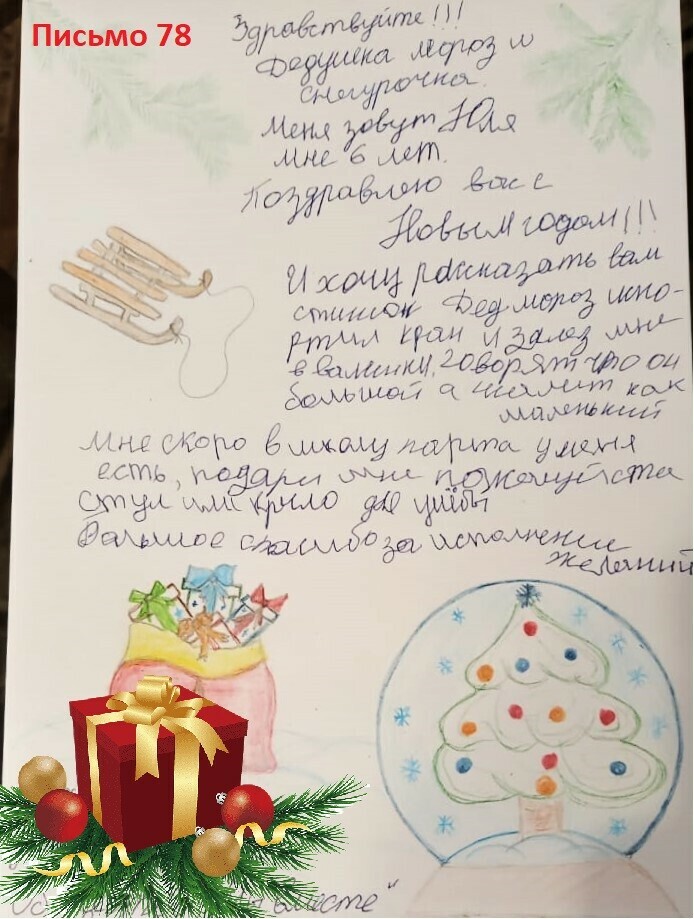 Письмо 78
Здравствуйте!!!
Дедушка мороз и
снегурочка.
Меня зовут Юля
мне 6 лет.
Поздравлею вас с
Новым годом!!!
И хочу рассказать вам
стишок Дед мороз испо-
ртил кран и залез мне
в валенки, говорят что он
большой а шалит как
маленький
мне скоро в школу парта у меня
есть, подари мне пожалуйста
стул или кресло для учёбы
Большое спасибо за исполнение
желаний
вместе"